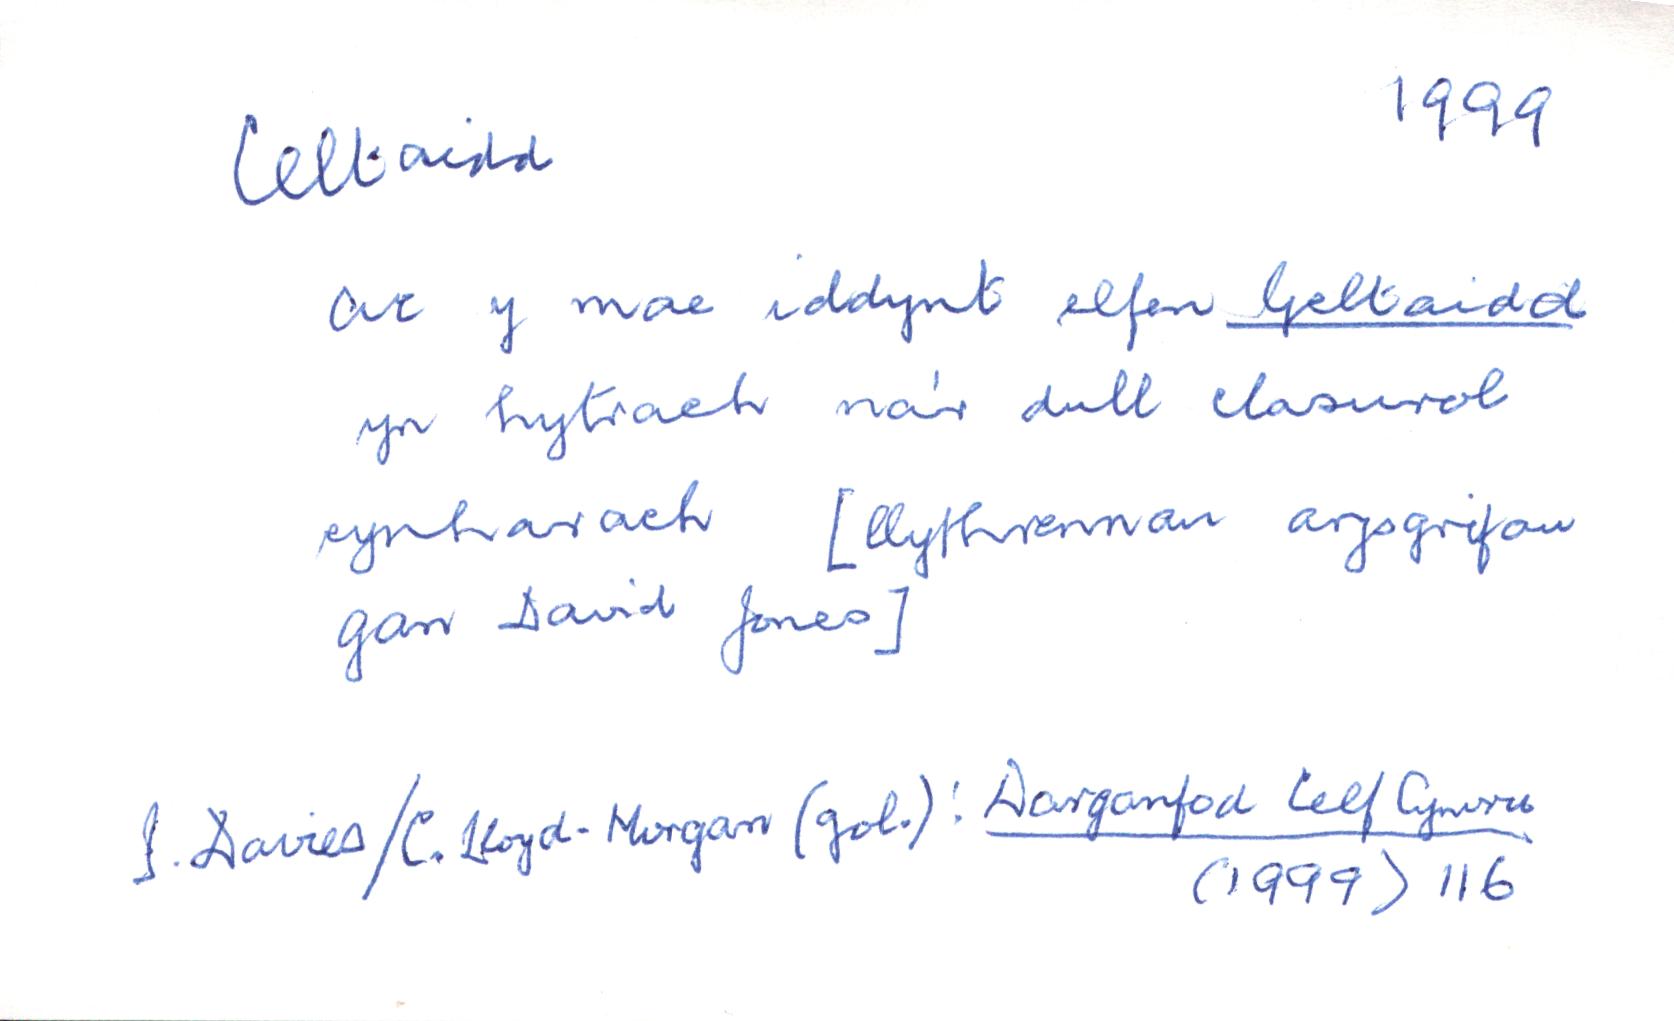 1999
Celtaidd
ac y mae iddynt elfen Geltaidd
yn hytrach na'r dull clasurol
cynharach [llythrennau arysgrifau
gan David Jones]
I. Davies/C. Lloyd-Morgan (gol.): Darganfod Celf Cymru
(1999) 116